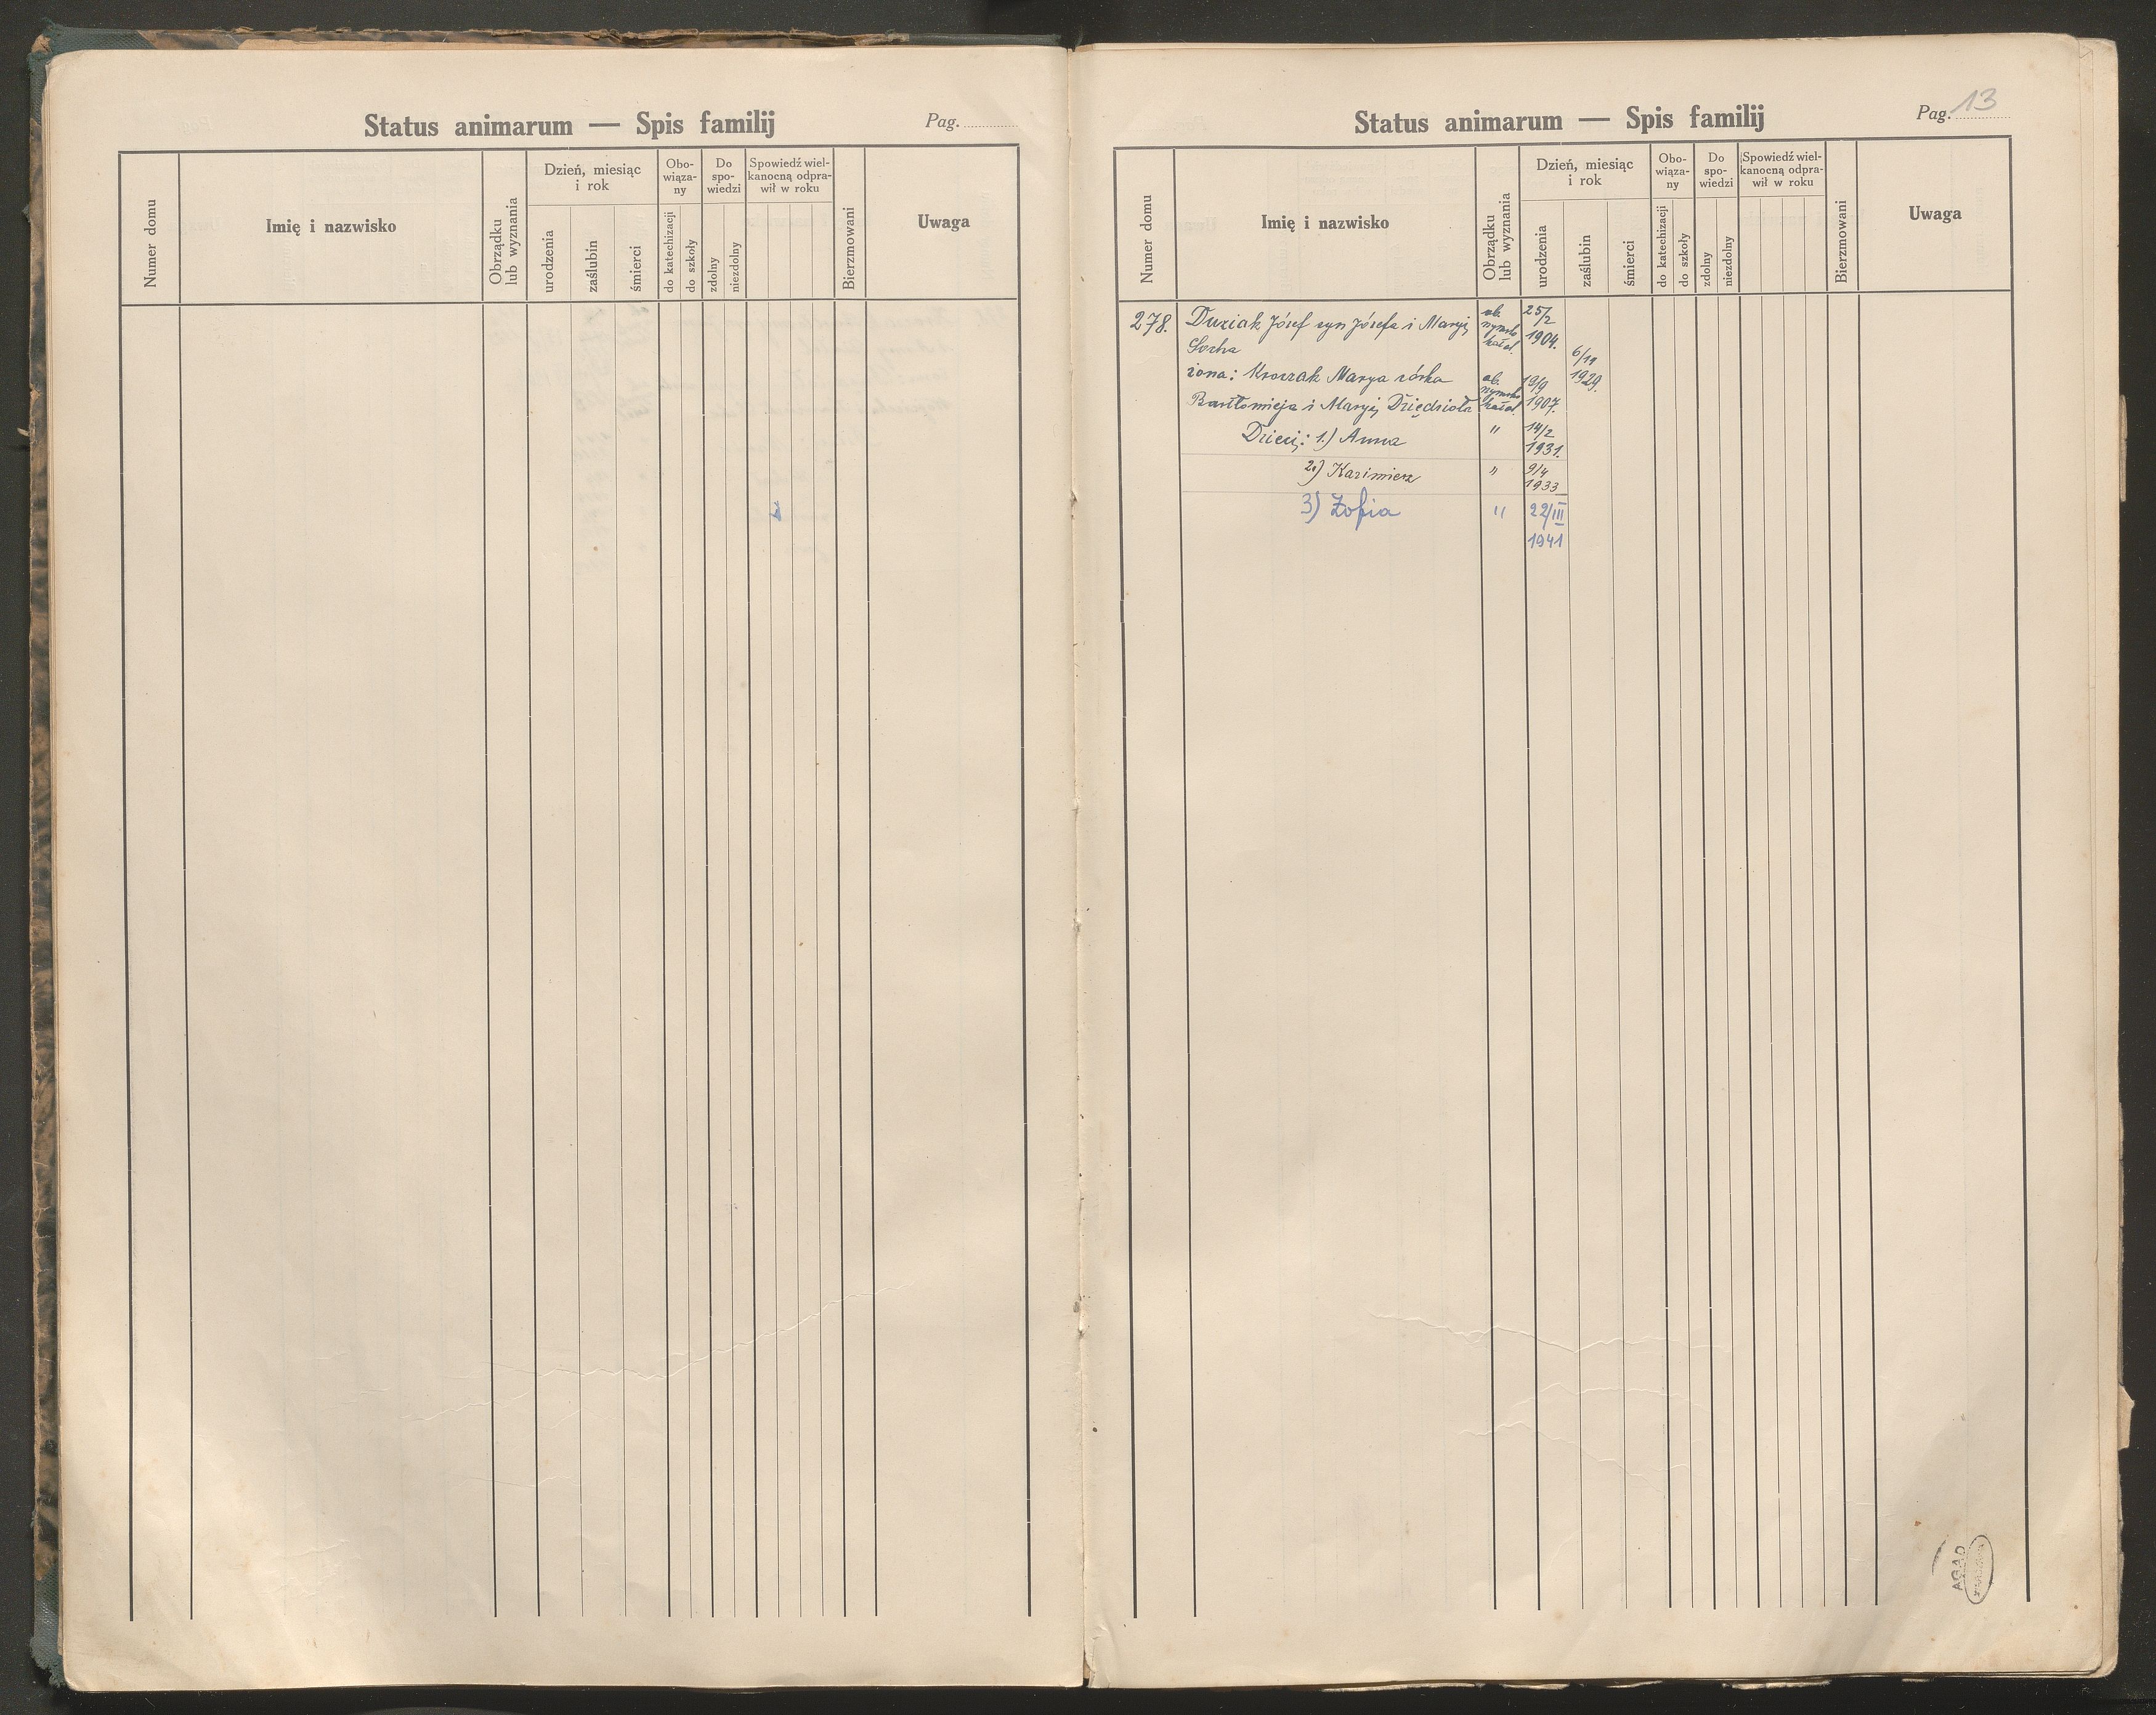 Status animarum — Spis familij
Pag.
Numer domu
Imię i nazwisko
Obrządku
lub wyznania
Dzień, miesiąc
i rok
urodzenia
zaślubin
śmierci
Obo-
wiąza-
ny
do katechizacji
do szkoły
Do
spo-
wiedzi
zdolny
niezdolny
Spowiedź wiel-
kanocną odpra-
wił w roku
Bierzmowani
Uwaga
Status animarum — Spis familij
Pag. 13
Numer domu
Imię i nazwisko
Obrządku
lub wyznania
Dzień, miesiąc
i rok
urodzenia
zaślubin
śmierci
Obo-
wiąza-
ny
do katechizacji
do szkoły
Do
spo-
wiedzi
zdolny
niezdolny
Spowiedź wiel-
kanocną odpra-
wił w roku
Bierzmowani
Uwaga
278. Duziak Józef syn Józefa i Maryi ob. 25/2
Socha rzymsko katol. 1904.
6/11
1929.
żona: Kroczak Marya córka ob. 19/9
Bartłomieja i Maryi Dziędzioła rzymsko katol. 1907.
Dzieci: 1.) Anna " 14/2
1931.
2.) Kazimierz " 9/4
1933
3) Zofia " 22/III
1941
AGAD